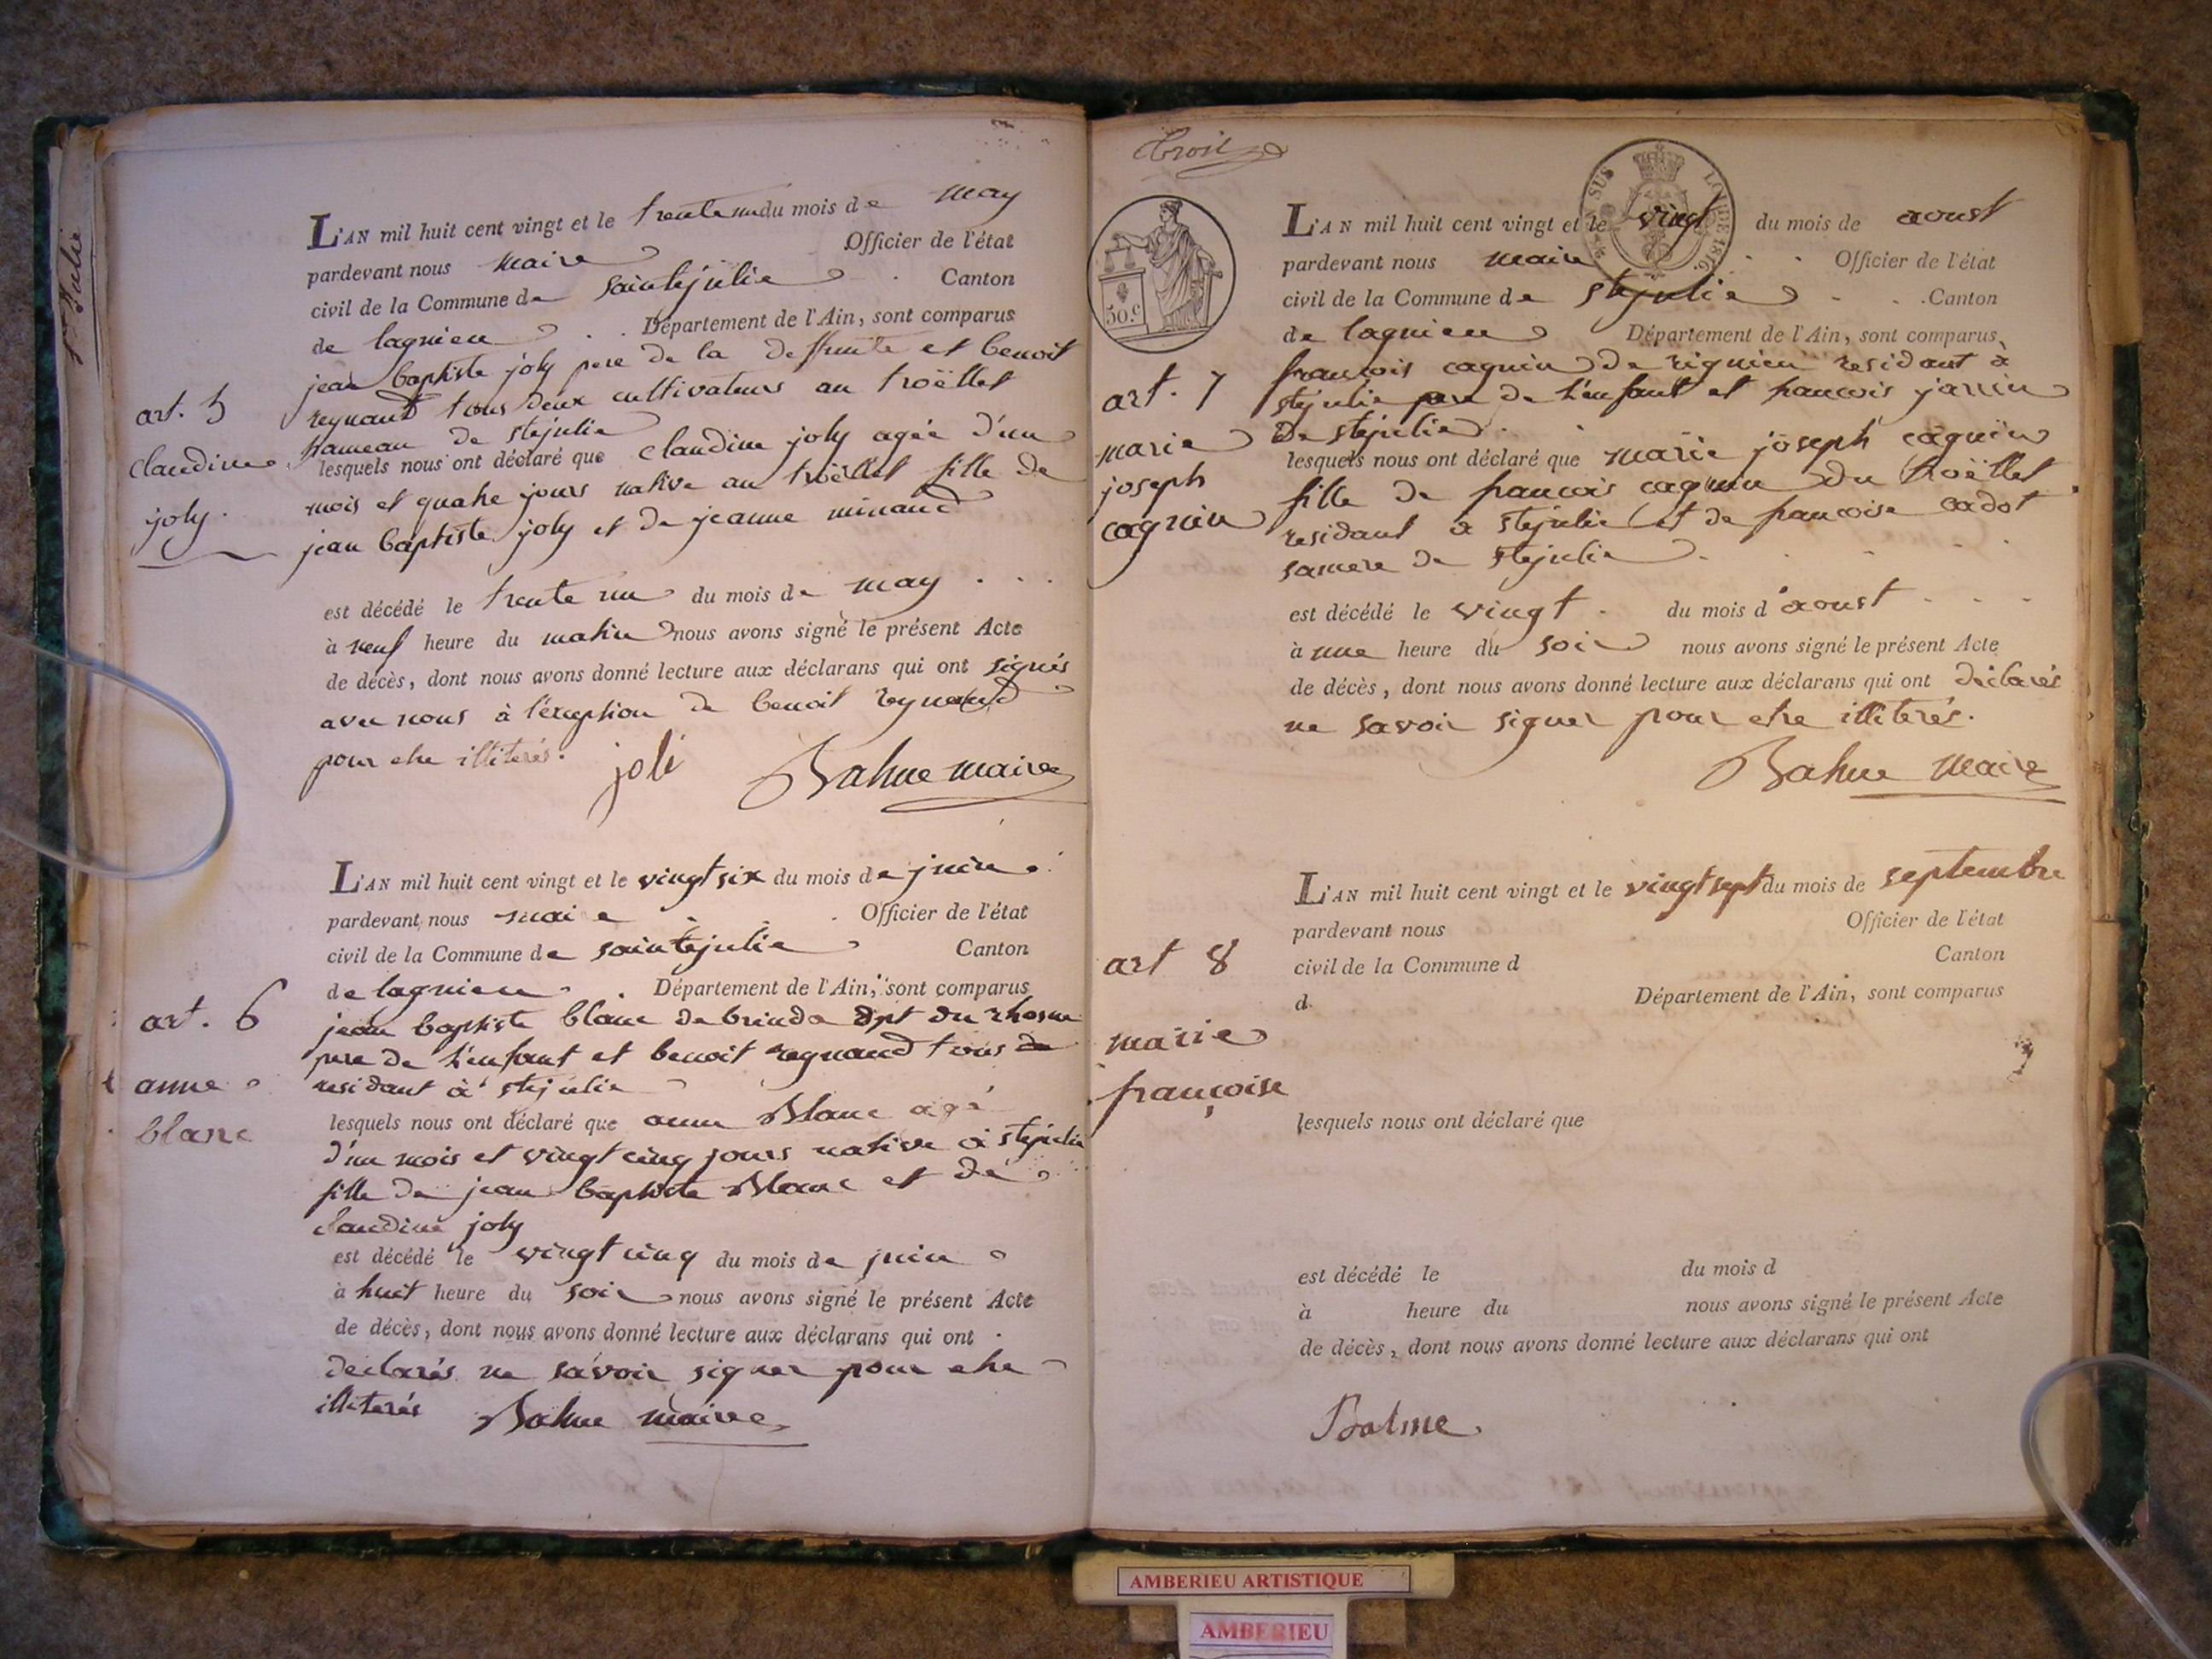 Ste Julie
L'AN mil huit cent vingt et le trente un du mois de may
pardevant nous maire Officier de l'état
civil de la Commune de saintejulie Canton
de lagnieu Département de l'Ain, sont comparus
jean baptiste joly pere de la deffunte et benoit
reynaud tous deux cultivateurs au troëllet
art. 5
hameau de stejulie
claudine
joly.
lesquels nous ont déclaré que claudine joly agée d'un
mois et quatre jours native au troëllet fille de
jean baptiste joly et de jeanne minaud
est décédé le trente un du mois de may
à neuf heure du matin nous avons signé le présent Acte
de décès, dont nous avons donné lecture aux déclarans qui ont signés
avec nous à l'éxeption de benoit reynaud
pour etre illiterés. joli Balme maire
L'AN mil huit cent vingt et le vingt six du mois de juin
pardevant nous maire Officier de l'état
civil de la Commune de saintejulie Canton
de lagnieu Département de l'Ain, sont comparus
art. 6
jean baptiste blanc de brinda dpt du rhosne
pere de l'enfant et benoit reynaud tous de
anne
blanc
residant à stejulie
lesquels nous ont déclaré que anne Blanc agé
d'un mois et vingt cinq jours native à stejulie
fille de jean baptiste Blanc et de
claudine joly
est décédé le vingt cinq du mois de juin
à huit heure du soir nous avons signé le présent Acte
de décès, dont nous avons donné lecture aux déclarans qui ont
declarés ne savoir signer pour etre
illiterés Balme maire
trois
SUS LOI DE 1816.
50.c
L'AN mil huit cent vingt et le vingt du mois de aoust
pardevant nous maire Officier de l'état
civil de la Commune de stejulie Canton
de lagnieu Département de l'Ain, sont comparus
art. 7
francois cagnin de rignieu residant à
stejulie pere de l'enfant et francois janin
de stejulie
marie
joseph
cagnin
lesquels nous ont déclaré que marie joseph cagnin
fille de francois cagnin du troëllet
residant à stejulie et de francoise cadot
samere de stejulie
est décédé le vingt du mois d'aoust
à une heure du soir nous avons signé le présent Acte
de décès, dont nous avons donné lecture aux déclarans qui ont déclarés
ne savoir signer pour etre illiterés.
Balme maire
L'AN mil huit cent vingt et le vingt sept du mois de septembre
pardevant nous Officier de l'état
civil de la Commune d Canton
d Département de l'Ain, sont comparus
art 8
marie
françoise
lesquels nous ont déclaré que
est décédé le du mois d
à heure du nous avons signé le présent Acte
de décès, dont nous avons donné lecture aux déclarans qui ont
Balme
AMBERIEU ARTISTIQUE
AMBERIEU